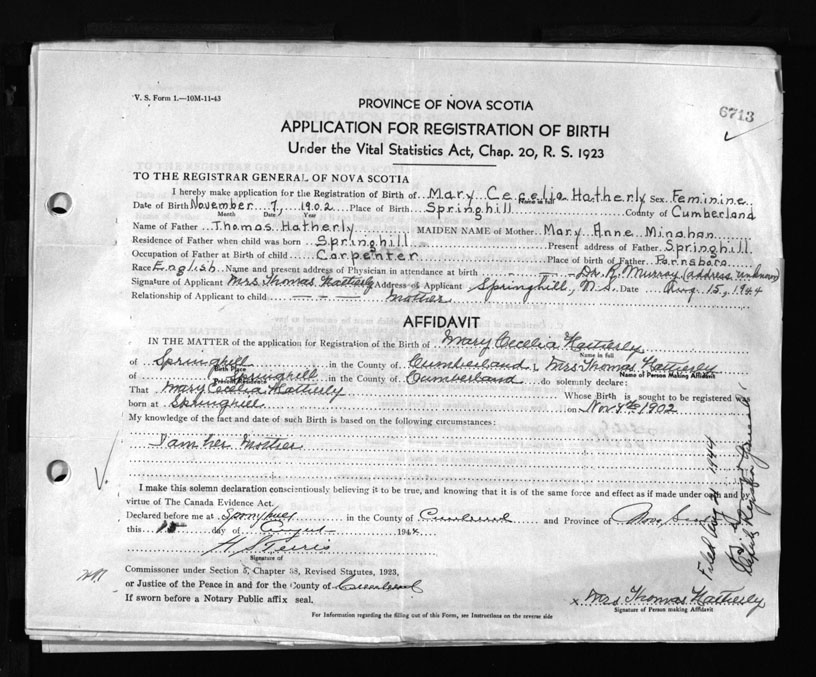 V. S. Form 1.—10M-11-43
6713
PROVINCE OF NOVA SCOTIA
APPLICATION FOR REGISTRATION OF BIRTH
Under the Vital Statistics Act, Chap. 20, R. S. 1923
TO THE REGISTRAR GENERAL OF NOVA SCOTIA
I hereby make application for the Registration of Birth of Mary Cecelia Hatherly Sex Feminine
Name in full
Date of Birth November 7, 1902 Place of Birth Springhill County of Cumberland
Month Date Year
Name of Father Thomas Hatherly MAIDEN NAME of Mother Mary Anne Minahan
Residence of Father when child was born Springhill Present address of Father Springhill
Occupation of Father at Birth of child Carpenter Place of birth of Father Parrsboro
Race English Name and present address of Physician in attendance at birth Dr. R. Murray (address unknown)
Signature of Applicant Mrs Thomas Hatherly Address of Applicant Springhill, N.S. Date Aug. 15, 1944
Relationship of Applicant to child mother
AFFIDAVIT
IN THE MATTER of the application for Registration of the Birth of Mary Cecelia Hatherly
Name in full
of Springhill in the County of Cumberland I, Mrs Thomas Hatherly
Birth Place Name of Person Making Affidavit
of Springhill in the County of Cumberland do solemnly declare:
That Mary Cecelia Hatherly Whose Birth is sought to be registered was
born at Springhill on Nov 7th 1902
My knowledge of the fact and date of such Birth is based on the following circumstances:
I am her mother
I make this solemn declaration conscientiously believing it to be true, and knowing that it is of the same force and effect as if made under oath and
virtue of The Canada Evidence Act.
Declared before me at Springhill in the County of Cumberland and Province of Nova Scotia
this 15 day of August 1944
Signature of
Commissioner under Section 5, Chapter 38, Revised Statutes, 1923,
or Justice of the Peace in and for the County of Cumberland
If sworn before a Notary Public affix seal.
x Mrs Thomas Hatherly
Signature of Person making Affidavit
For Information regarding the filling out of this Form, see Instructions on the reverse side
Filed Aug 21 1944